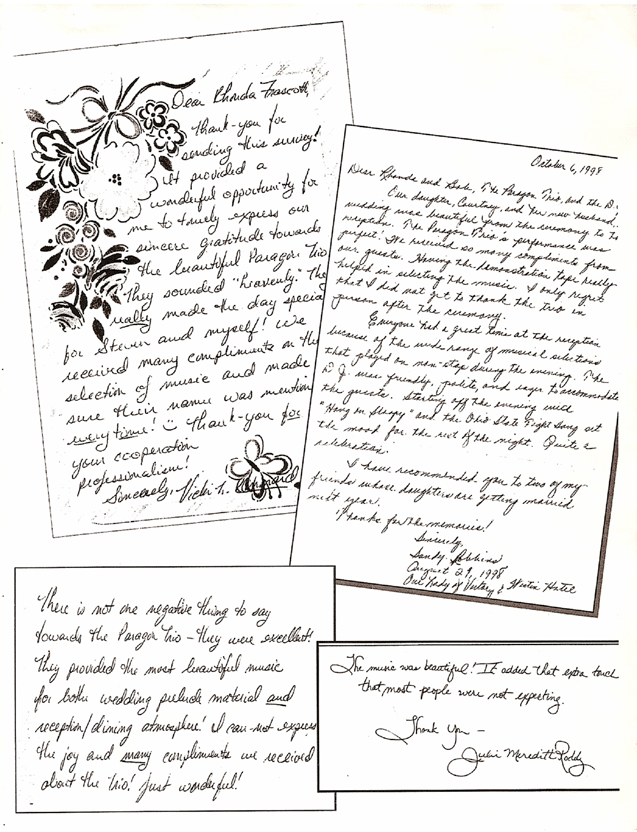 Dear Rhonda Frascotti,
Thank-you for
sending this survey!
It provided a
wonderful opportunity for
me to truely express our
sincere gratitude towards
the beautiful Paragon Trio
They sounded "heavenly." They
really made the day special
for Steven and myself! We
received many compliments on the
selection of music and made
sure their name was mention
everytime! ☺ Thank-you for
your cooperation
professionalism!
Sincerely, Vicki L.
October 6, 1998
Dear Rhonda and Bob, The Paragon Trio, and the D.
Our daughter, Courtney, and her new husband's
wedding was beautiful from the ceremony to the
reception. The Paragon Trio's performance was
perfect. We received so many compliments from
our guests. Having the demonstration tape really
helped in selecting the music. I only regret
that I did not get to thank the trio in
person after the ceremony.
Everyone had a great time at the reception
because of the wide range of musical selections
that played on non-stop during the evening. The
D.J. was friendly, polite, and eager to accommodate
the guests. Starting off the evening with
"Hang on Sloopy" and the Ohio State Fight Song set
the mood for the rest of the night. Quite a
celebration.
I have recommended you to two of my
friends whose daughters are getting married
next year.
Thanks for the memories!
Sincerely,
Sandy Robbins
August 29, 1998
Our Lady of Victory & Westin Hotel
There is not one negative thing to say
towards the Paragon Trio - they were excellent!
They provided the most beautiful music
for both wedding prelude material and
reception/dining atmosphere! I can not express
the joy and many compliments we received
about the trio! Just wonderful!
The music was beautiful! It added that extra touch
that most people were not expecting.
Thank You -
Julie Meredith Roddy